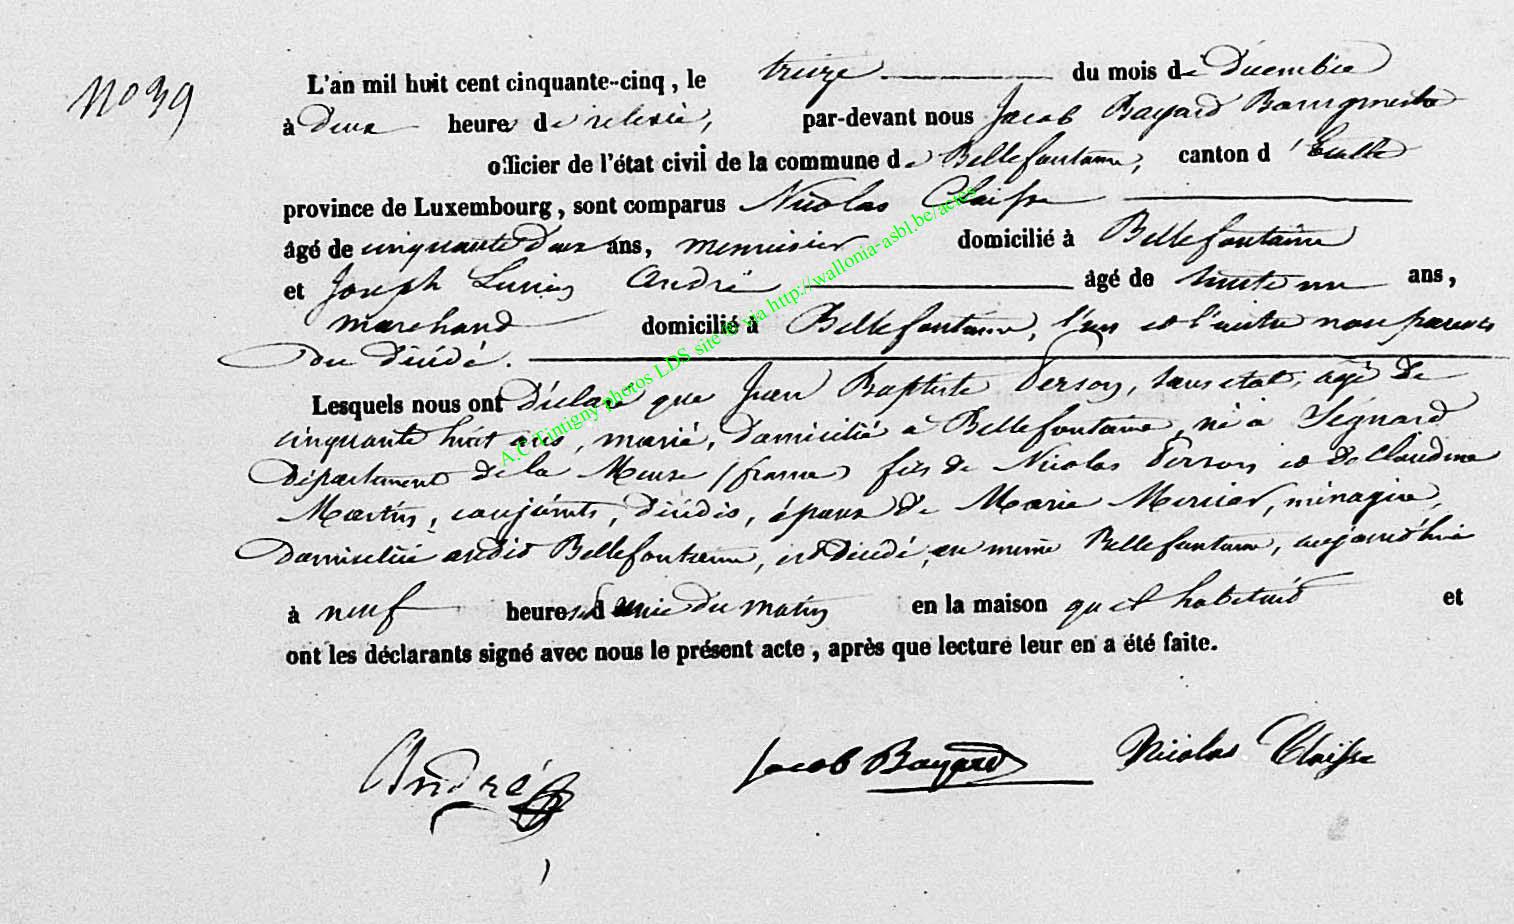 N° 39
L'an mil huit cent cinquante-cinq, le treize du mois de Décembre
à deux heures de relevée, par-devant nous Jacob Bayard Bourgmestre
officier de l'état civil de la commune de Bellefontaine, canton d'Etalle
province de Luxembourg, sont comparus Nicolas Claisse
âgé de cinquante deux ans, menuisier domicilié à Bellefontaine
et Joseph Lucien André âgé de trente un ans,
marchand domicilié à Bellefontaine, l'un et l'autre non parents
du décédé.
Lesquels nous ont Déclaré que Jean Baptiste Person, sans état, agé de
cinquante huit ans, marié, domicilié a Bellefontaine, né a
Département de la Meuse (france) fils de Nicolas Person et de Claudine
Martin, conjoints, décédés, époux de Marie Mercier, ménagère,
domiciliée audit Bellefontaine, est décédé, en même Bellefontaine, aujourd'hui
à neuf heures et demie du matin en la maison qu'il habitait et
ont les déclarants signé avec nous le présent acte, après que lecture leur en a été faite.
André Jacob Bayard Nicolas Claisse
A.C Tintigny photos LDS site lu via http://wallonia-asbl.be/actes